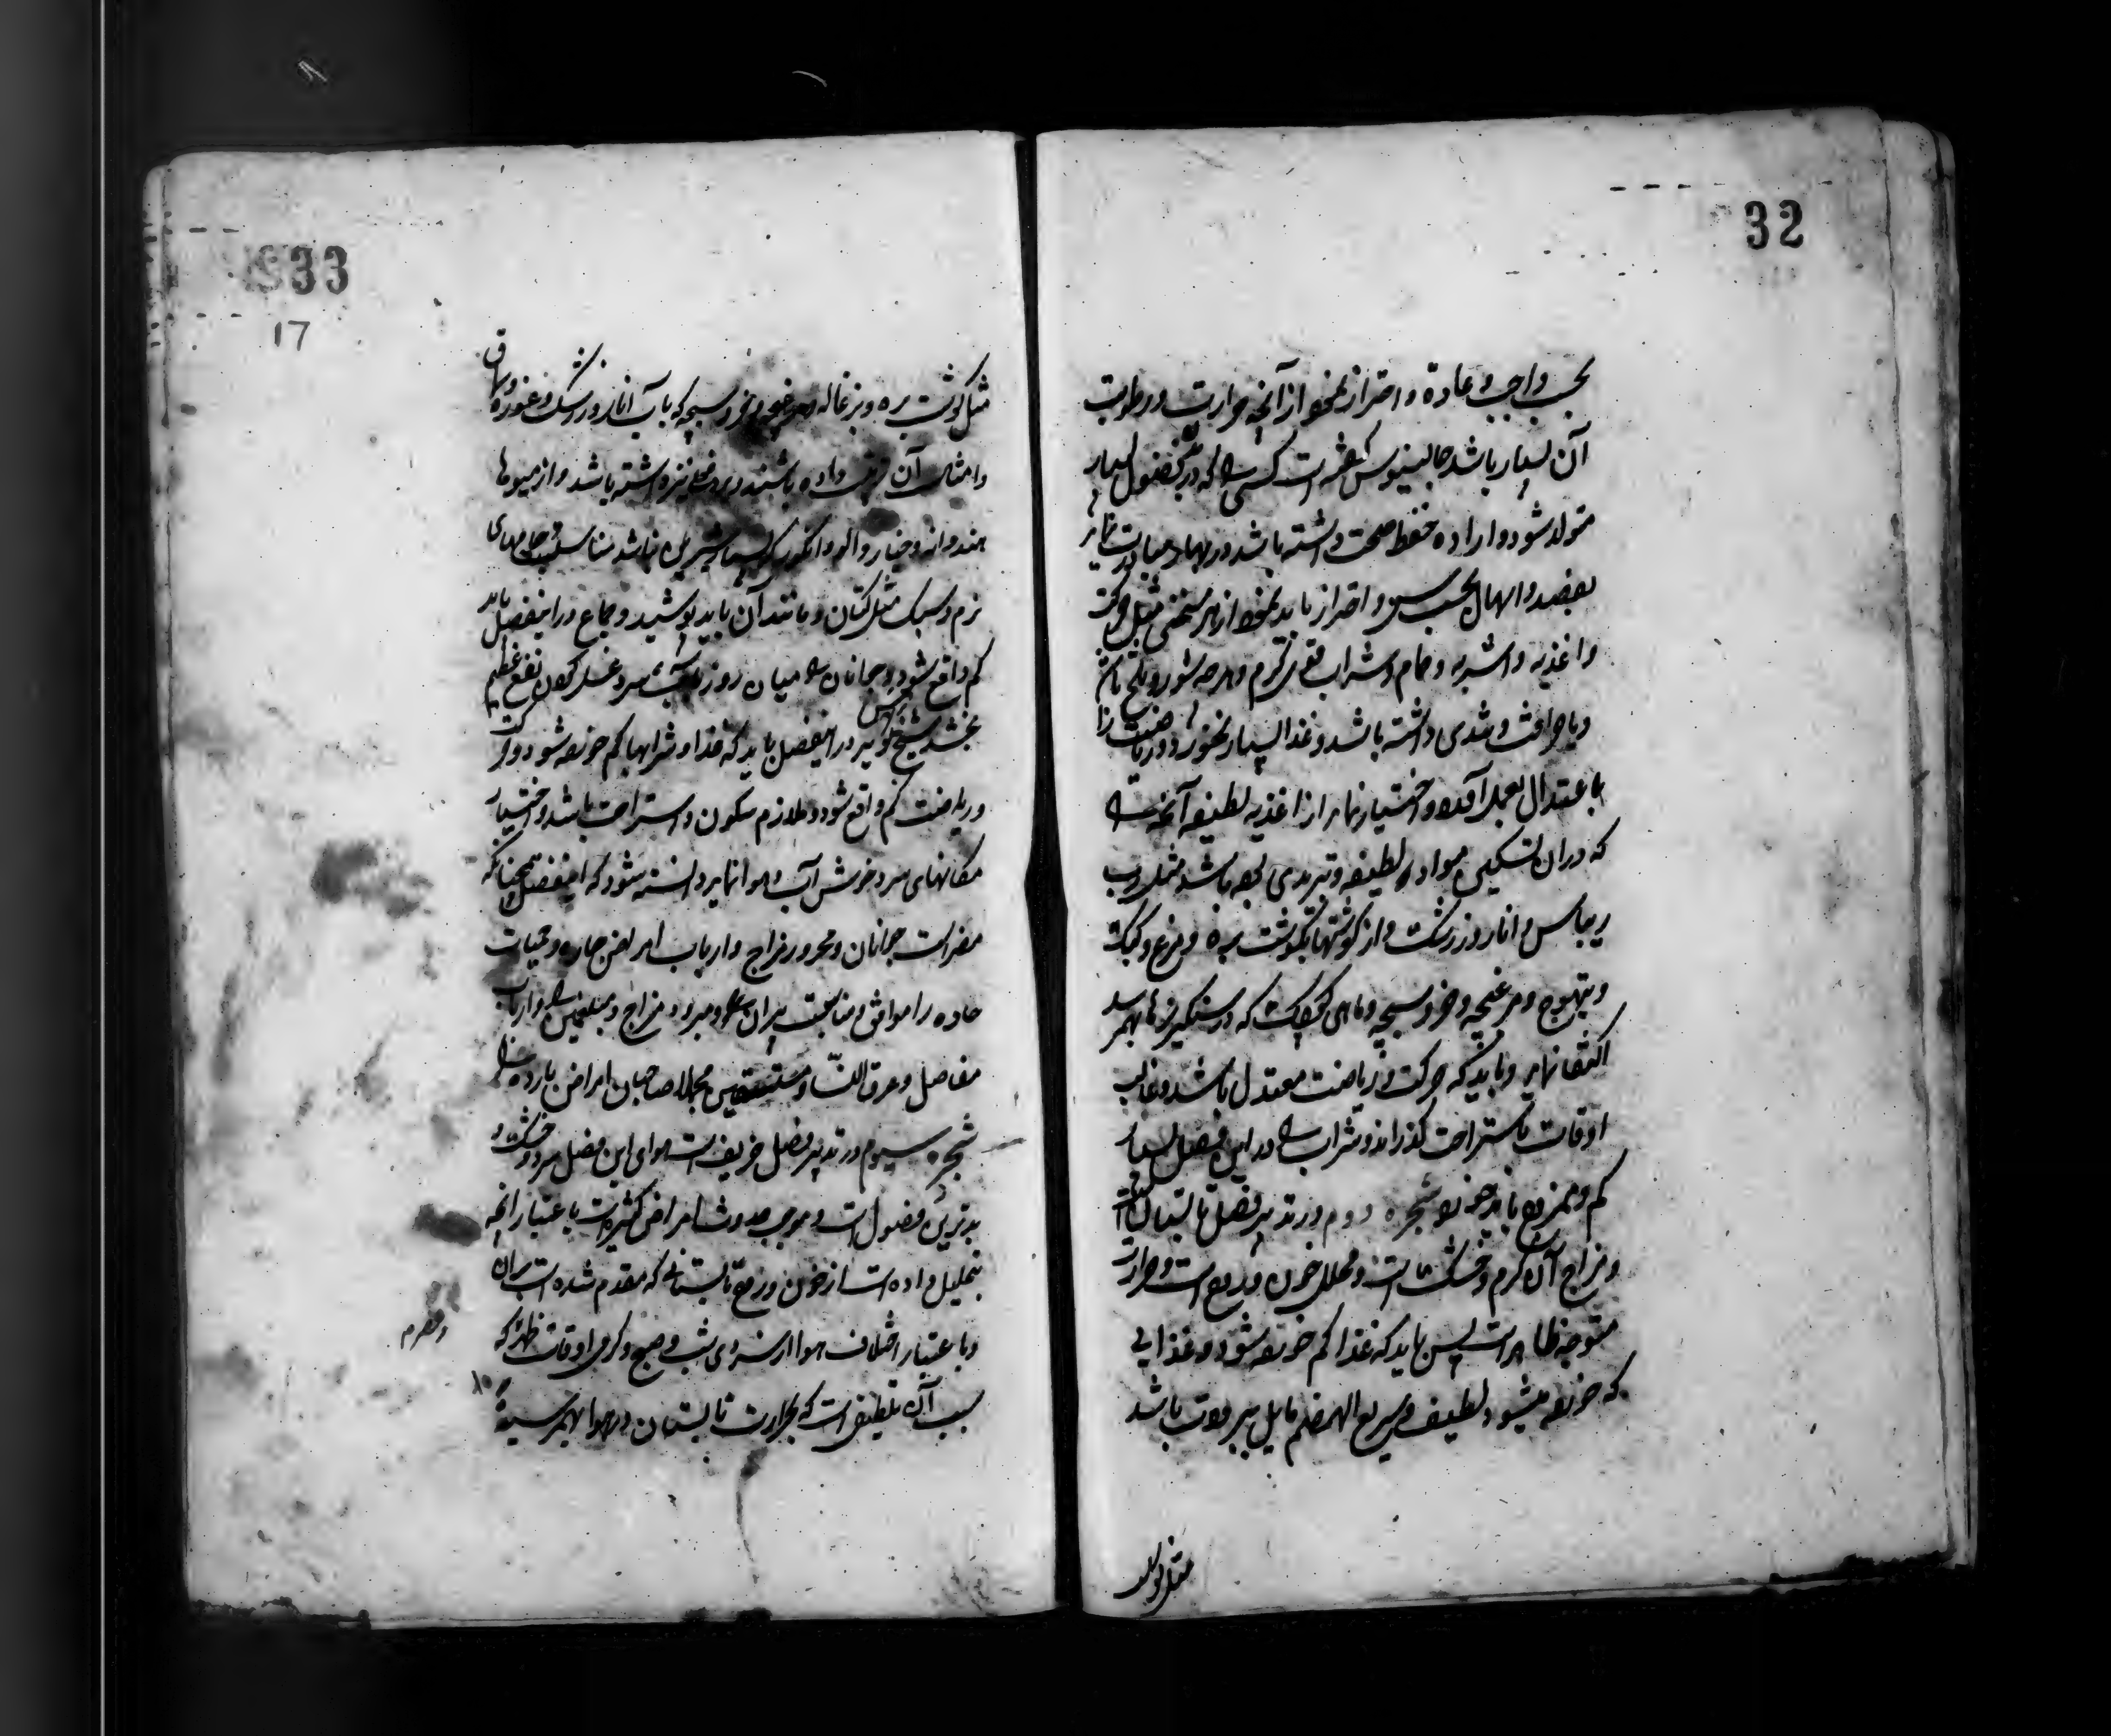 32
بحسب واجب و عادة و احتراز نمودن از آنچه حرارت و رطوبت
آن بسیار باشد جالینوس گفته است کسی را که در بدن فضول بسیار
متولد شود و اراده حفظ صحت داشته باشد در بهار مبادرت نماید
بفصد و اسهال بحسب سن و احتراز باید نمود از هر مسخنی مثل حرکت
و اغذیه و اشربه و حمام و شراب قوی گرم و هرچه شور و تلخ باشد
و یا حرافت و تندی داشته باشد و غذا بسیار نخورد و ریاضت را
باعتدال بعمل آورد و اختیار نماید از اغذیه لطیفه آنچه را
که در آن تسکین مواد و لطیفه و تبریدی بوده باشد مثل رب
ریباس و انار و زرشک و از گوشتها بگوشت بره و مرغ و کبک
و تیهوج و مرغچه و خروسچه و ماهی کوچک که در سنگریزها بهم رسد
اکتفا نماید و باید که حرکت و ریاضت معتدل باشد و غالب
اوقات باستراحت گذراند و شراب را در این فصل بسیار
کم و ممزوج باید خورد شجره دوم در تدبیر فصل تابستان است
و مزاج آن گرم و خشک است و محلل خون و روح است و حرارت
متوجه ظاهر است پس باید که غذا کم خورده شود و غذایی
که خورده میشود لطیف و سریع الهضم مایل ببرودت باشد
مثل گوشت
33
17
مثل گوشت بره و بزغاله و مرغچه و خروسچه که بآب انار و زرشک و غوره و سماق
و امثال آن داده باشند و روغن نداشته باشد و از میوها
هندوانه و خیار و آلو و انگور که بسیار شیرین نباشد مناسب جامهای
نرم و سبک مثل کتان و مانند آن باید پوشید و جماع در این فصل باید
کم واقع شود و جوانان را میان روز بآب سرد غسل کردن نفع عظیم
بخشد شیخ الرئیس گوید در این فصل باید که غذا و شرابها کم خورده شود و حرکت
و ریاضت کم واقع شود و ملازم سکون و استراحت باشد و اختیار
مکانهای سرد خوش آب و هوا نماید دانسته شود که این فصل همچنانکه
مضر است جوانان و محرور مزاج و ارباب امراض حاره و حمیات
حاده را موافق و مناسبست پیران و مبرود مزاج و مبلغمین را و ارباب
مفاصل و عرق النسا و مستسقین مجملا صاحبان امراض بارده را
شجره سیوم در تدبیر فصل خریف است هوای این فصل سرد و خشک و
بدترین فصول است و موجب حدوث امراض کثیره است باعتبار آنچه
بتحلیل داده است از خون و روح تابستانی که مقدم شده است بر آن
و باعتبار اختلاف هوا از سردی شب و صبح و گرمی اوقات ظهر که
سبب آن تلطیفی است که بحرارت تابستان در هوا بهم رسیده